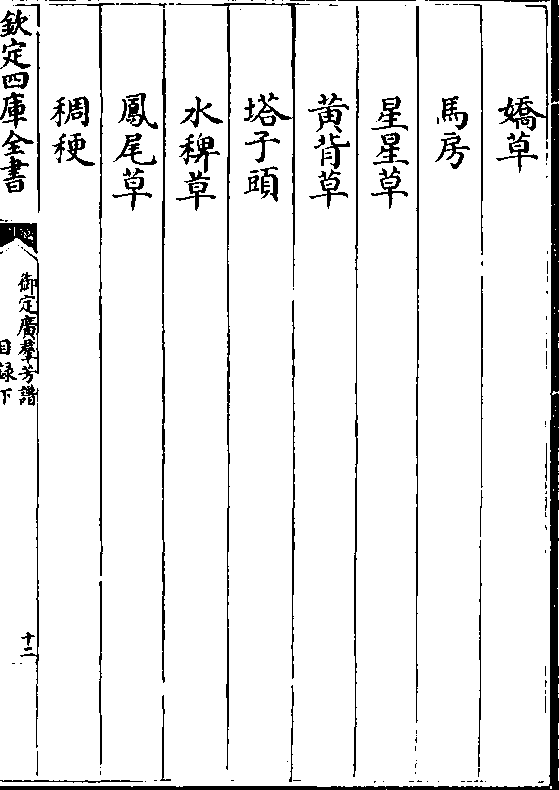 嬌草
馬房
星星草
黄背草
塔子頭
水稗草
鳳尾草
稠稉
欽定四庫全書
御定廣羣芳譜
目録下
十二